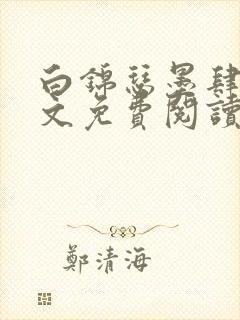 白錦瑟墨肆
文免費閱讀
鄭清海